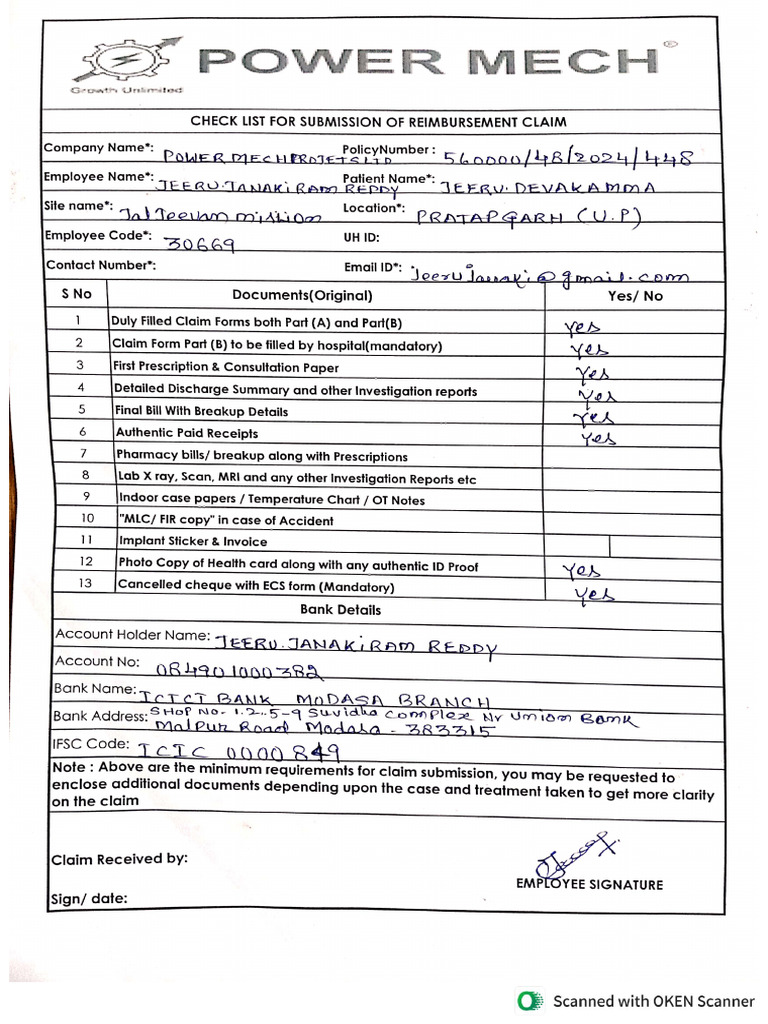 POWER MECH®
Growth Unlimited
CHECK LIST FOR SUBMISSION OF REIMBURSEMENT CLAIM
Company Name*: POWER MECHPROJETSLTD PolicyNumber : 560000/48/2024/448
Employee Name*: JEERU.JANAKIRAM REDDY Patient Name*: JEERU.DEVAKAMMA
Site name*: Jal Jeevan mission Location*: PRATAPGARH (U.P)
Employee Code*: 30669 UH ID:
Contact Number*: Email ID*: Jeerujanaki@gmail.com
S No Documents(Original) Yes/ No
1 Duly Filled Claim Forms both Part (A) and Part(B) yes
2 Claim Form Part (B) to be filled by hospital(mandatory) yes
3 First Prescription & Consultation Paper Yes
4 Detailed Discharge Summary and other Investigation reports Yes
5 Final Bill With Breakup Details Yes
6 Authentic Paid Receipts Yes
7 Pharmacy bills/ breakup along with Prescriptions
8 Lab X ray, Scan, MRI and any other Investigation Reports etc
9 Indoor case papers / Temperature Chart / OT Notes
10 "MLC/ FIR copy" in case of Accident
11 Implant Sticker & Invoice
12 Photo Copy of Health card along with any authentic ID Proof Yes
13 Cancelled cheque with ECS form (Mandatory) Yes
Bank Details
Account Holder Name: JEERU.JANAKIRAM REDDY
Account No: 084901000382
Bank Name: ICICI BANK MODASA BRANCH
Bank Address: SHOP NO-1.2..5-9 Suvidha Complex Nr Union Bank
Malpur Road Modasa - 383315
IFSC Code: ICIC 0000849
Note : Above are the minimum requirements for claim submission, you may be requested to
enclose additional documents depending upon the case and treatment taken to get more clarity
on the claim
Claim Received by:
EMPLOYEE SIGNATURE
Sign/ date:
Scanned with OKEN Scanner